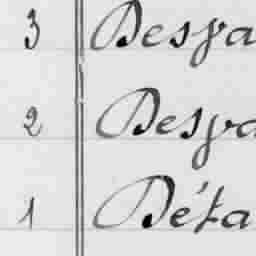 3 Despa
2 Despa
1 Déta